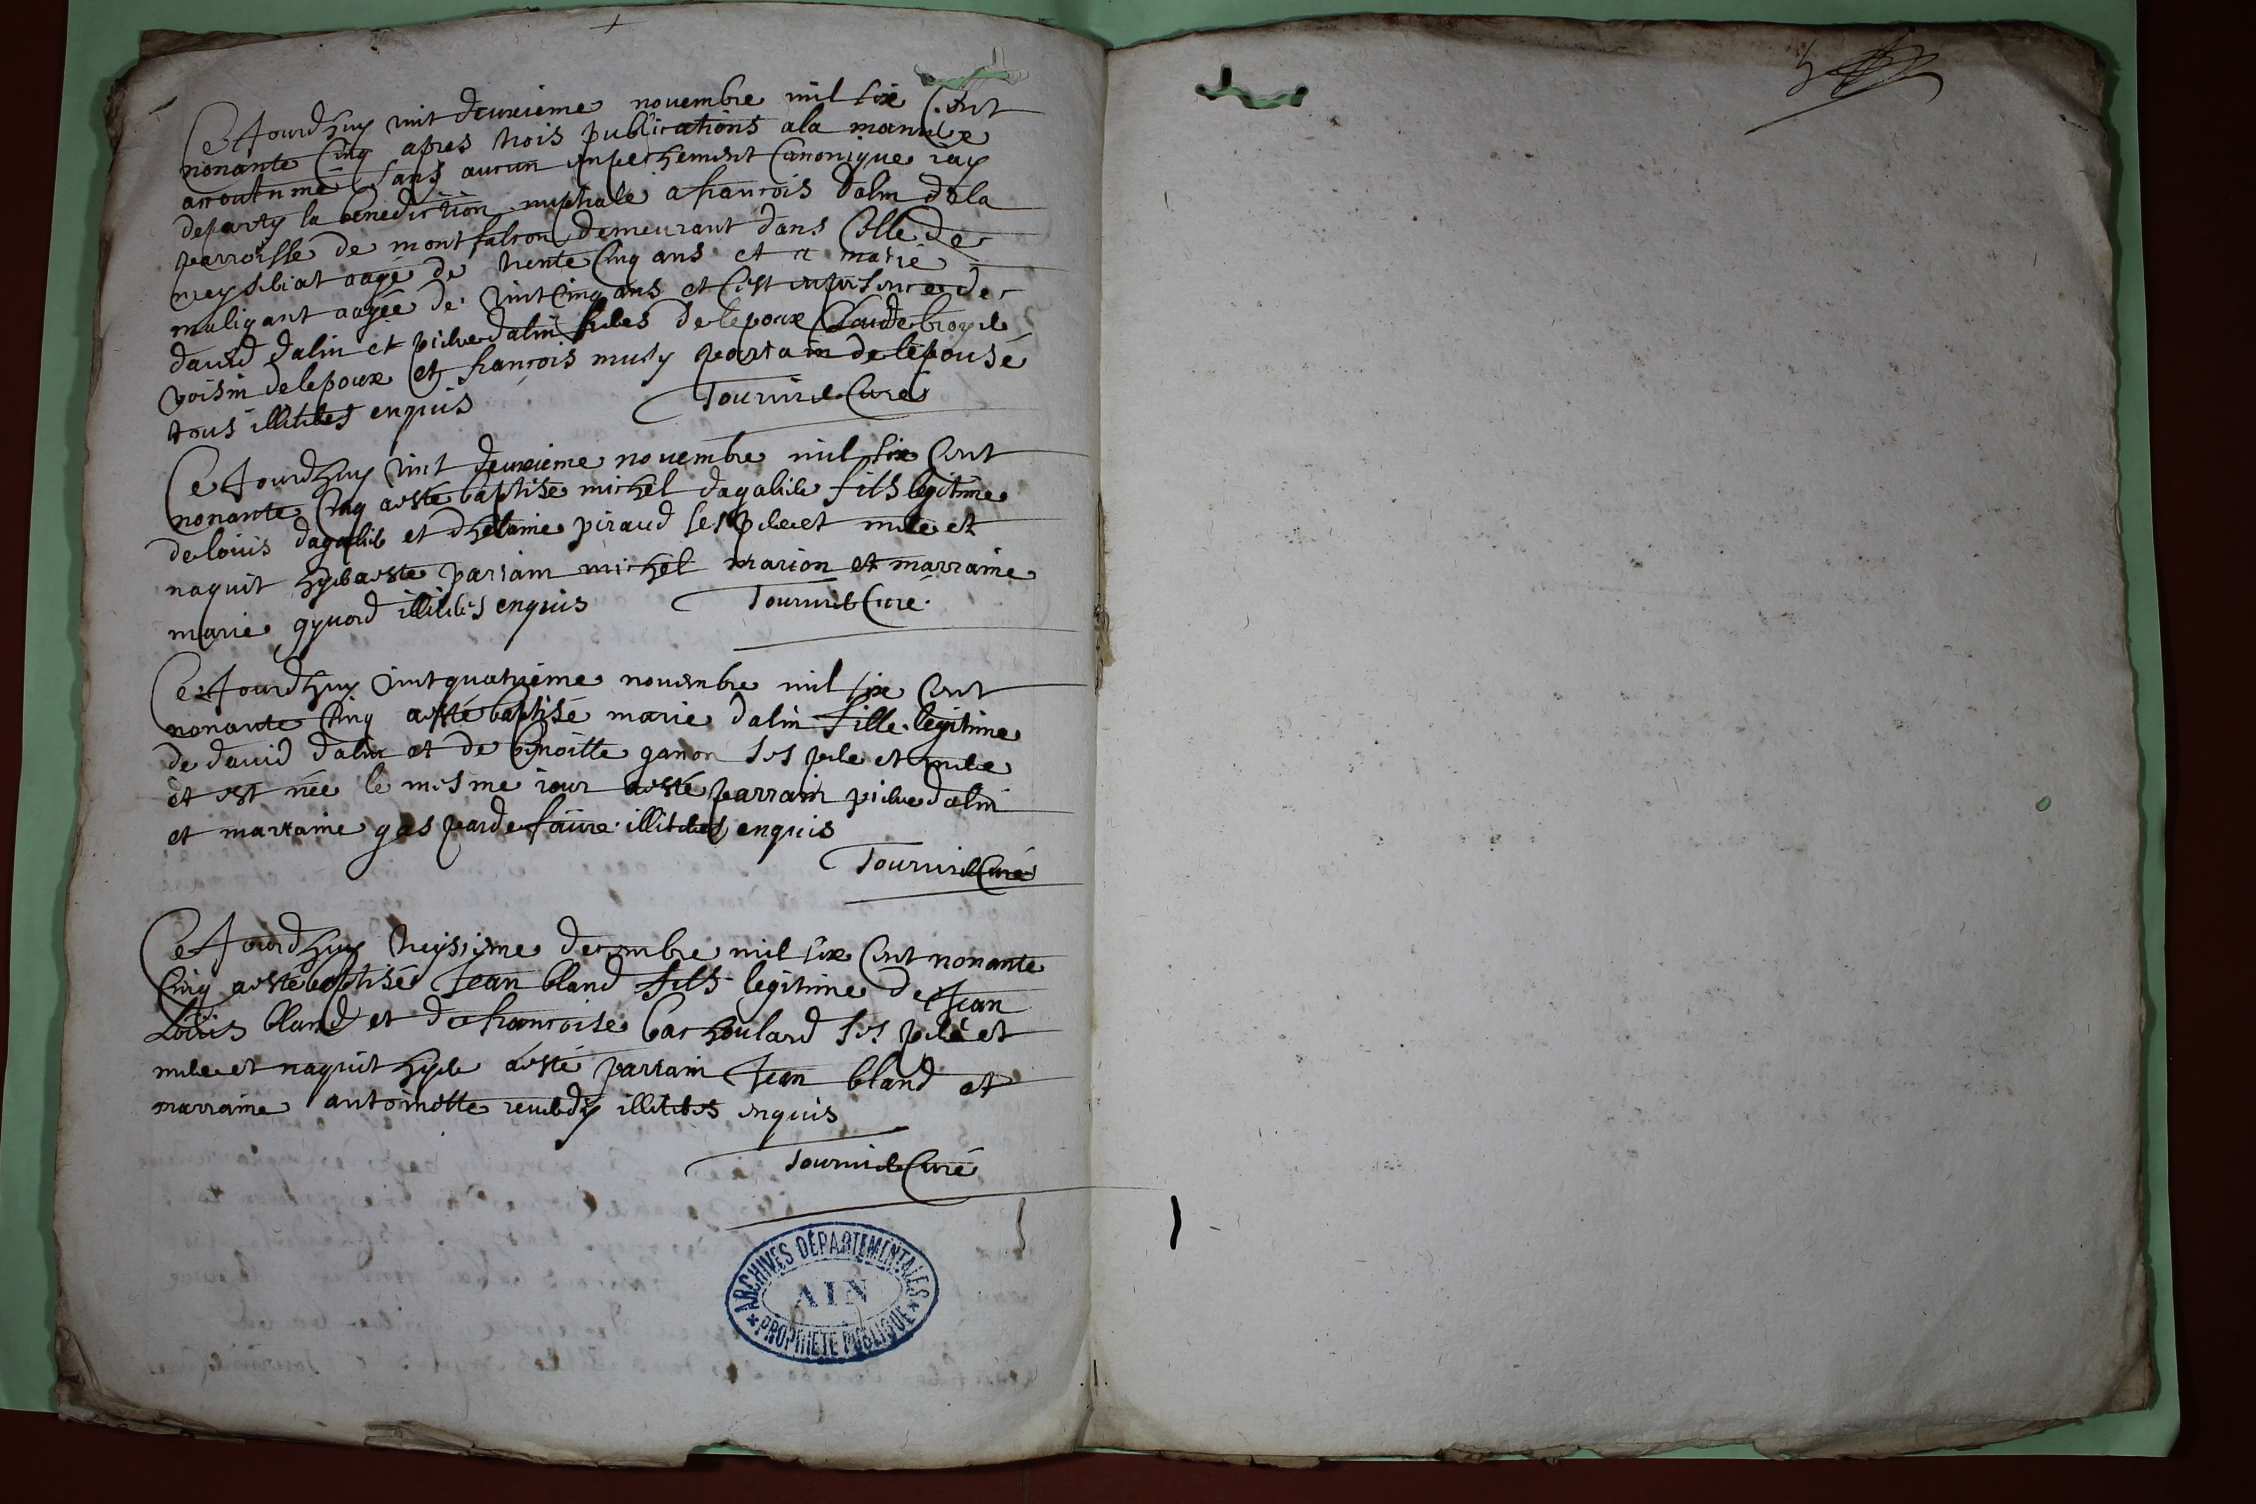 Ce Jourdhuy vint deuxieme novembre mil six Cent
nonante Cinq apres trois publications a la maniere
accoutumé sans aucun empechement Canonique iay
departy la benediction nuptiale a francois dalin dela
parroisse de montfalcon demeurant dans Celle de
meysiliat aagé de trente Cinq ans et a marie
maligant aagée de vint Cinq ans et Cest en presence de
david dalin et pierre dalin freres de lepoux Claude
voisin de lepoux et francois musy parrain de lepousé
tous illiteres enquis Tournier Curé
Ce Jourdhuy vint deuxieme novembre mil six Cent
nonante Cinq a esté baptise michel dagalier fils legitime
de louis dagalier et dhelaine piraud ses pere et mere et
naquit hyer a esté parrain michel marion et marraine
marie gyuord illiteres enquis Tournier Curé
Ce Jourdhuy vint quatrieme novembre mil six Cent
nonante Cinq a esté baptisé marie dalin fille legitime
de david dalin et de benoitte ganon ses pere et mere
et est née le mesme iour a esté parrain pierre dalin
et marraine gasparde faure illiteres enquis
Tournier Curé
Ce Jourdhuy treysieme decembre mil six Cent nonante
Cinq a esté baptisé Jean bland fils legitime de Jean
Louis bland et de francoise bachoulard ses pere et
mere et naquit hyer a esté parrain Jean bland et
marraine antoinette reverdy illiteres enquis
Tournier Curé
ARCHIVES DÉPARTEMENTALES
AIN
PROPRIÉTÉ PUBLIQUE
5